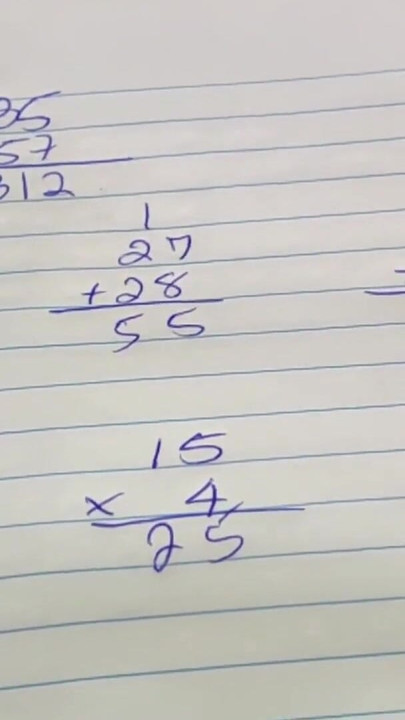 35
57
312
1
27
+28
55
15
× 4
25